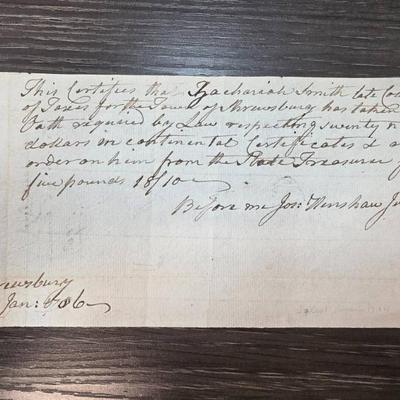 This Certifies that Zachariah Smith late Co
of Taxes for the Town of Shrewsbury has taken
Oath required by Law respecting twenty n
dollars in continental Certificates & a
order on him from the State Treasurer f
five pounds 18/10
Before me Jos: Henshaw Ju
rewsbury
Jan: 86